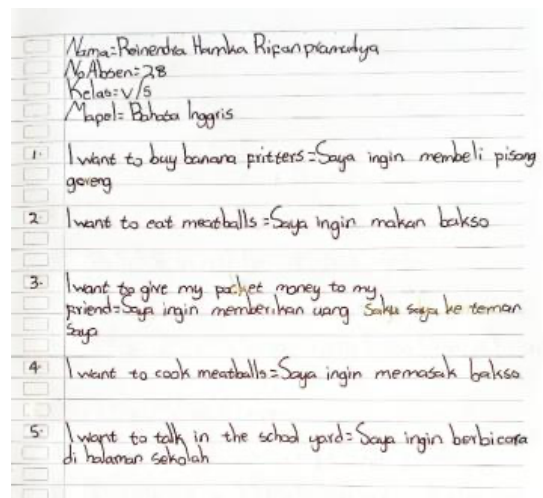 Nama=Reinendra Hamka Rifan pramudya
No Absen=28
Kelas=V/5
Mapel= Bahasa Inggris
1. I want to buy banana pritters=Saya ingin membeli pisang
goreng
2 I want to eat meatballs=Saya ingin makan bakso
3. I want to give my pocket money to my
priend=Saya ingin memberikan uang saku saya ke teman
saya
4 I want to cook meatballs=Saya ingin memasak bakso
5. I want to talk in the school yard=Saya ingin berbicara
di halaman sekolah